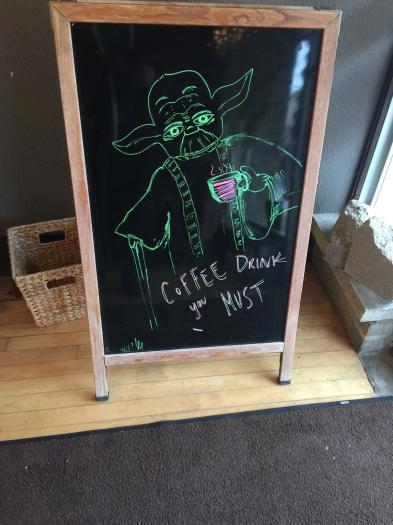 COFFEE DRINK
you MUST